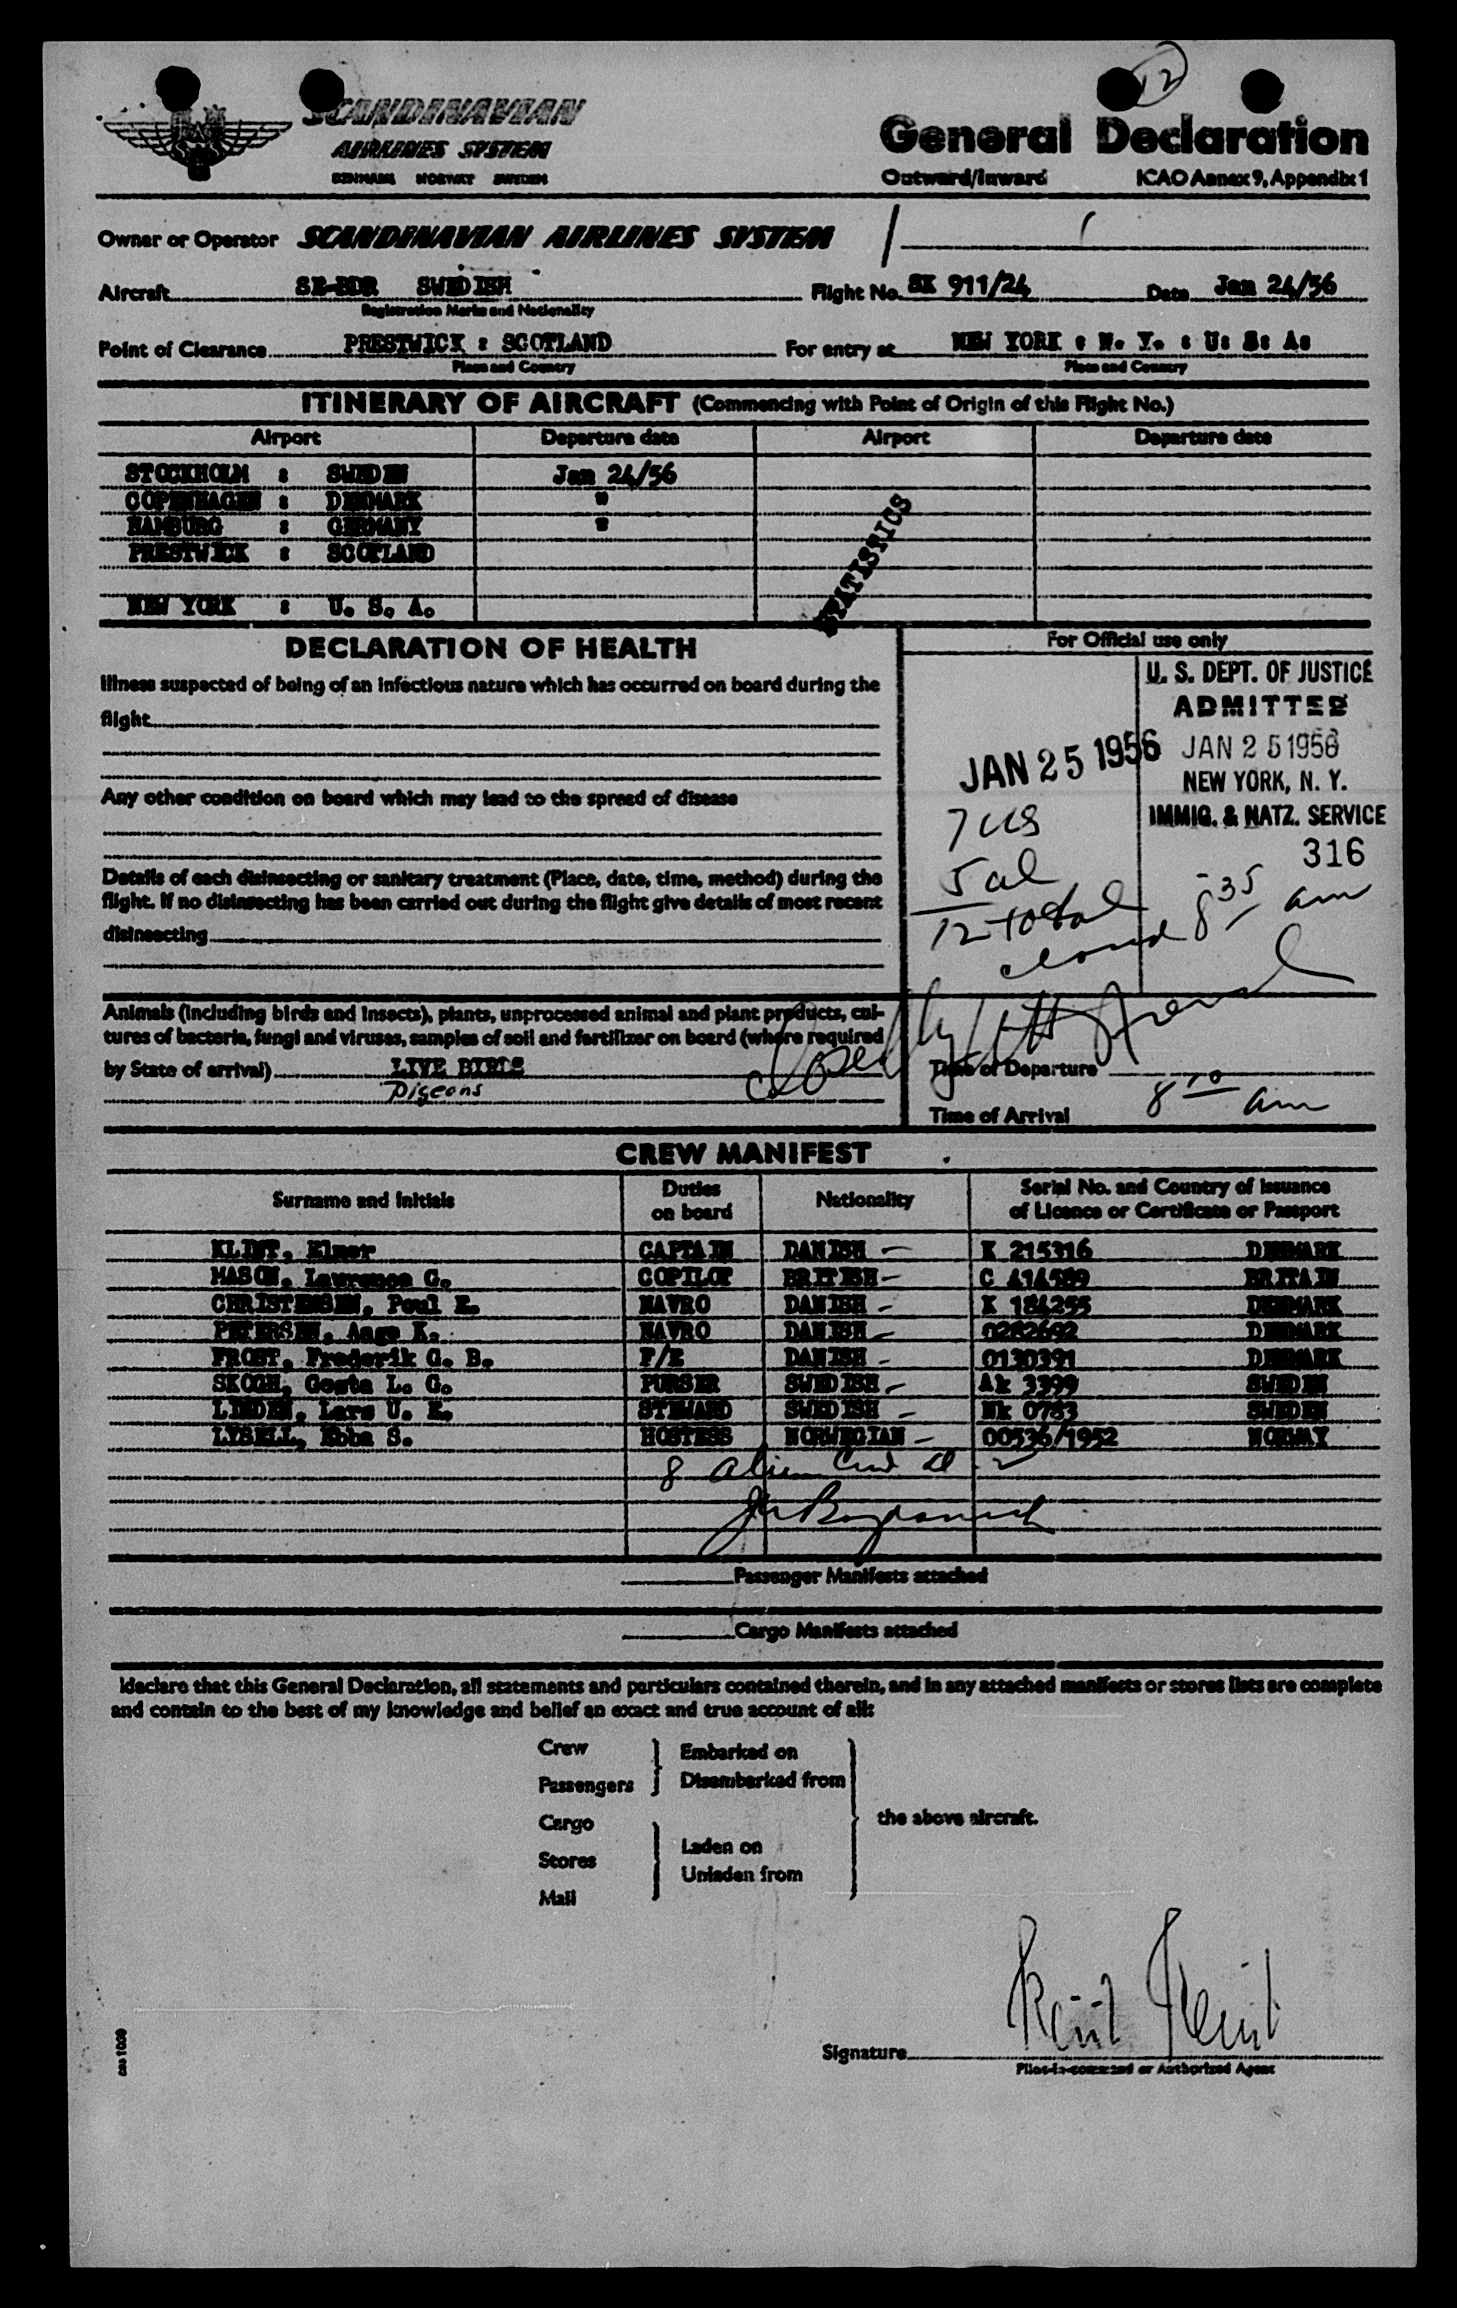 12
SCANDINAVIAN
AIRLINES SYSTEM
DENMARK NORWAY SWEDEN
General Declaration
Outward/Inward ICAO Annex 9, Appendix 1
Owner or Operator SCANDINAVIAN AIRLINES SYSTEM
Aircraft SE-BDR SWEDISH Flight No. SK 911/24 Date Jan 24/56
Registration Marks and Nationality
Point of Clearance PRESTWICK : SCOTLAND For entry at NEW YORK : N. Y. : U: S: A:
Place and Country Place and Country
ITINERARY OF AIRCRAFT (Commencing with Point of Origin of this Flight No.)
Airport Departure date Airport Departure date
STOCKHOLM : SWEDEN Jan 24/56
COPENHAGEN : DENMARK "
HAMBURG : GERMANY "
PRESTWICK : SCOTLAND
NEW YORK : U. S. A.
STATISTICS
DECLARATION OF HEALTH
Illness suspected of being of an infectious nature which has occurred on board during the
flight
Any other condition on board which may lead to the spread of disease
Details of each disinsecting or sanitary treatment (Place, date, time, method) during the
flight. If no disinsecting has been carried out during the flight give details of most recent
disinsecting
Animals (including birds and insects), plants, unprocessed animal and plant products, cul-
tures of bacteria, fungi and viruses, samples of soil and fertilizer on board (where required
by State of arrival) LIVE BIRDS
Pigeons
For Official use only
U. S. DEPT. OF JUSTICE
ADMITTED
JAN 25 1956
JAN 25 1956
NEW YORK, N. Y.
IMMIG. & NATZ. SERVICE
316
7 us
5 al
12 total
closed 8 35 am
Time of Departure
8 10 am
Time of Arrival
CREW MANIFEST
Surname and Initials Duties on board Nationality Serial No. and Country of Issuance of Licence or Certificate or Passport
KLINT, Elmer CAPTAIN DANISH - K 215316 DENMARK
MASON, Lawrence G. COPILOT BRITISH - C 414589 BRITAIN
CHRISTENSEN, Poul E. NAVRO DANISH - K 184255 DENMARK
PETERSEN, Aage K. NAVRO DANISH - 0282692 DENMARK
FROST, Frederik G. B. F/E DANISH - 0130391 DENMARK
SKOGH, Gosta L. G. PURSER SWEDISH - Ak 3399 SWEDEN
LINDEN, Lars U. E. STEWARD SWEDISH - Nk 0783 SWEDEN
LYSELL, Ebba S. HOSTESS NORWEGIAN - 00536/1952 NORWAY
8 alien
Passenger Manifests attached
Cargo Manifests attached
I declare that this General Declaration, all statements and particulars contained therein, and in any attached manifests or stores lists are complete
and contain to the best of my knowledge and belief an exact and true account of all:
Crew Embarked on
Passengers Disembarked from
Cargo the above aircraft.
Laden on
Stores
Unladen from
Mail
Signature
Pilot-in-command or Authorized Agent